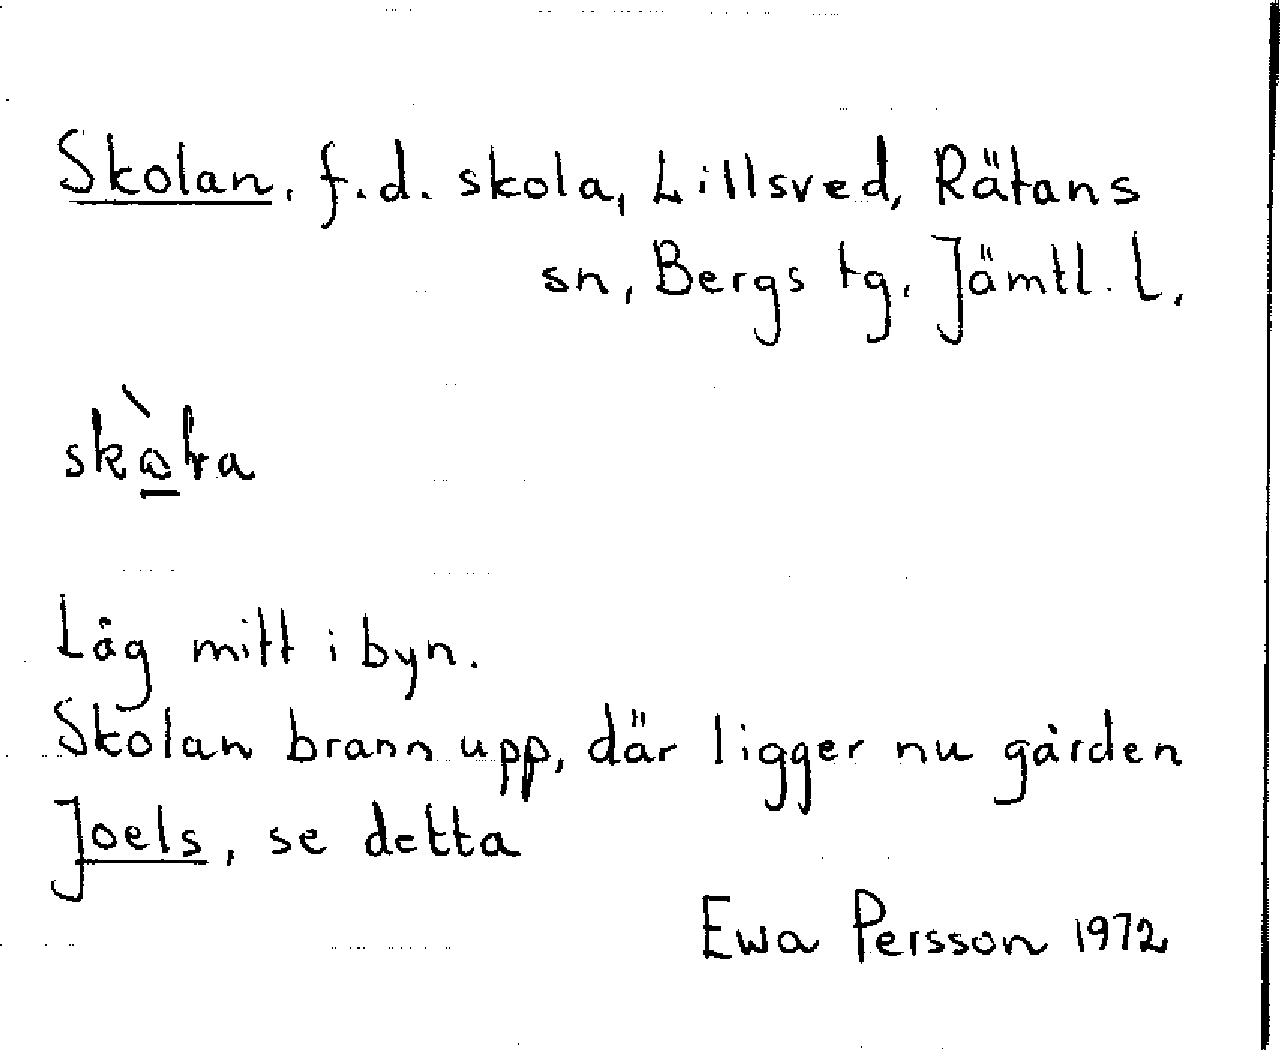 Skolan, f.d. skola, Lillsved, Rätans
sn, Bergs tg. Jämtl. l.
Låg mitt i byn.
Skolan brann upp, där ligger nu gården
Joels, se detta
Ewa Persson 1972